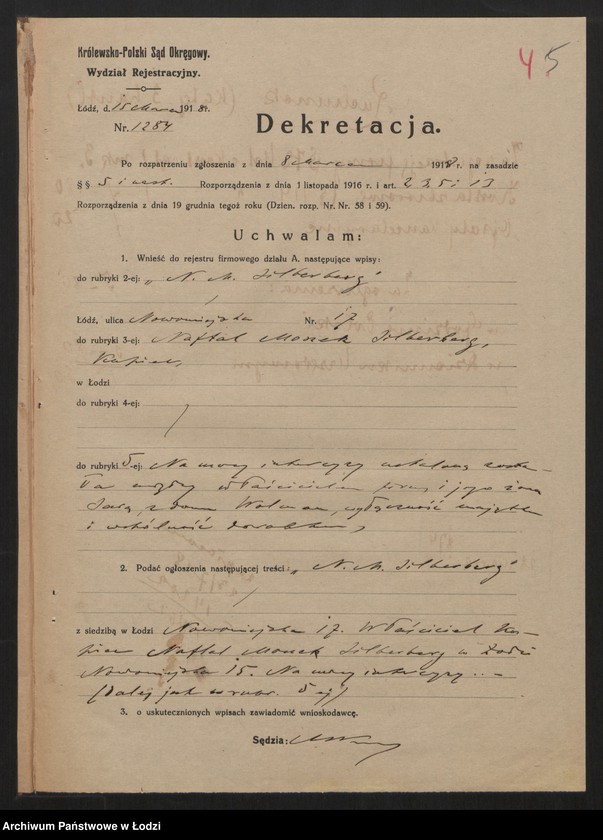 45
Królewsko-Polski Sąd Okręgowy.
Wydział Rejestracyjny.
Łódź, d. 15 marca 1918 r.
Nr. 1284
Dekretacja.
Po rozpatrzeniu zgłoszenia z dnia 8 marca 1918 r. na zasadzie
§ § 5 i nast. Rozporządzenia z dnia 1 listopada 1916 r. i art. 2 3, 5 i 13
Rozporządzenia z dnia 19 grudnia tegoż roku (Dzien. rozp. Nr. Nr. 58 i 59).
Uchwalam:
1. Wnieść do rejestru firmowego działu A. następujące wpisy:
do rubryki 2-ej: „N. M. Silberberg"
Łódź, ulica Nowomiejska Nr. 17
do rubryki 3-ej: Naftal Moszek Silberberg,
kupiec,
w Łodzi
do rubryki 4-ej:
do rubryki 5-ej: Na mocy intercyzy ustaloną zosta-
ła między właścicielem firmy i jego żoną
Surą z domu Wolman, wyłączność majątku
i wspólność dorobku,
2. Podać ogłoszenia następującej treści: „N. M. Silberberg"
z siedzibą w Łodzi Nowomiejska 17. Właściciel ku-
piec Naftal Moszek Silberberg w Łodzi
Nowomiejska 15. Na mocy intercyzy . . -
(dalej jak w rubr. 5 ej)
3. o uskutecznionych wpisach zawiadomić wnioskodawcę.
Sędzia:
Archiwum Państwowe w Łodzi